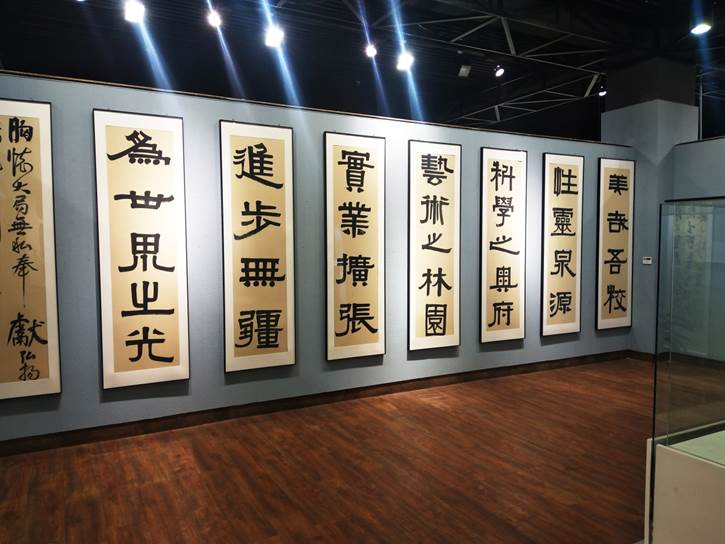 美哉吾校
性靈泉源
科學之奧府
藝術之林園
實業擴張
進步無疆
為世界之光
胸懷大局無私奉獻弘揚